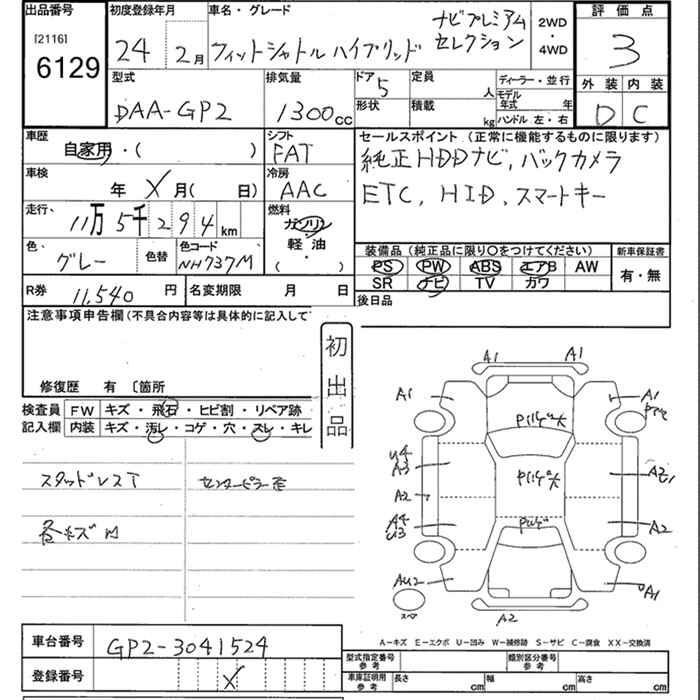 出品番号
[2116]
6129
初度登録年月
24 年 2月
車名・グレード
フィットシャトルハイブリッド
ナビプレミアム
セレクション
2WD
・
4WD
評価点
3
外装 内装
D C
型式
DAA-GP2
排気量
1300cc
ドア 5
形状
定員 人
積載 kg
ディーラー・並行
モデル年式 年
ハンドル 左・右
車歴
自家用・( )
シフト
FAT
セールスポイント (正常に機能するものに限ります)
純正HDDナビ、バックカメラ
ETC, HID、スマートキー
車検
年 X月( 日)
冷房
AAC
走行、
11万5千294km
燃料
ガソリン
軽・油
( )
色、
グレー
色替
色コード
NH737M
装備品 (純正品に限り○をつけてください)
PS PW ABS エアB AW
SR ナビ TV カワ
新車保証書
有・無
R券
11,540 円
名変期限 月 日
後日品
注意事項申告欄(不具合内容等は具体的に記入して
修復歴 有 〔箇所
初出品
検査員
記入欄
FW キズ・飛石・ヒビ割・リペア跡
内装 キズ・汚レ・コゲ・穴・スレ・キレ
スタッドレスT
センターピラー歪
各キズ凹
A1 A1
A1
A1
U4
A3
A2
A4
U3
A2
AU2
A1
スペ
A2
A-キズ E-エクボ U-凹み W-補修跡 S-サビ C-腐食 XX-交換済
車台番号
GP2-3041524
登録番号
X
型式指定番号
参考
類別区分番号
参考
車庫証明用
参考
長さ cm
幅 cm
高さ cm